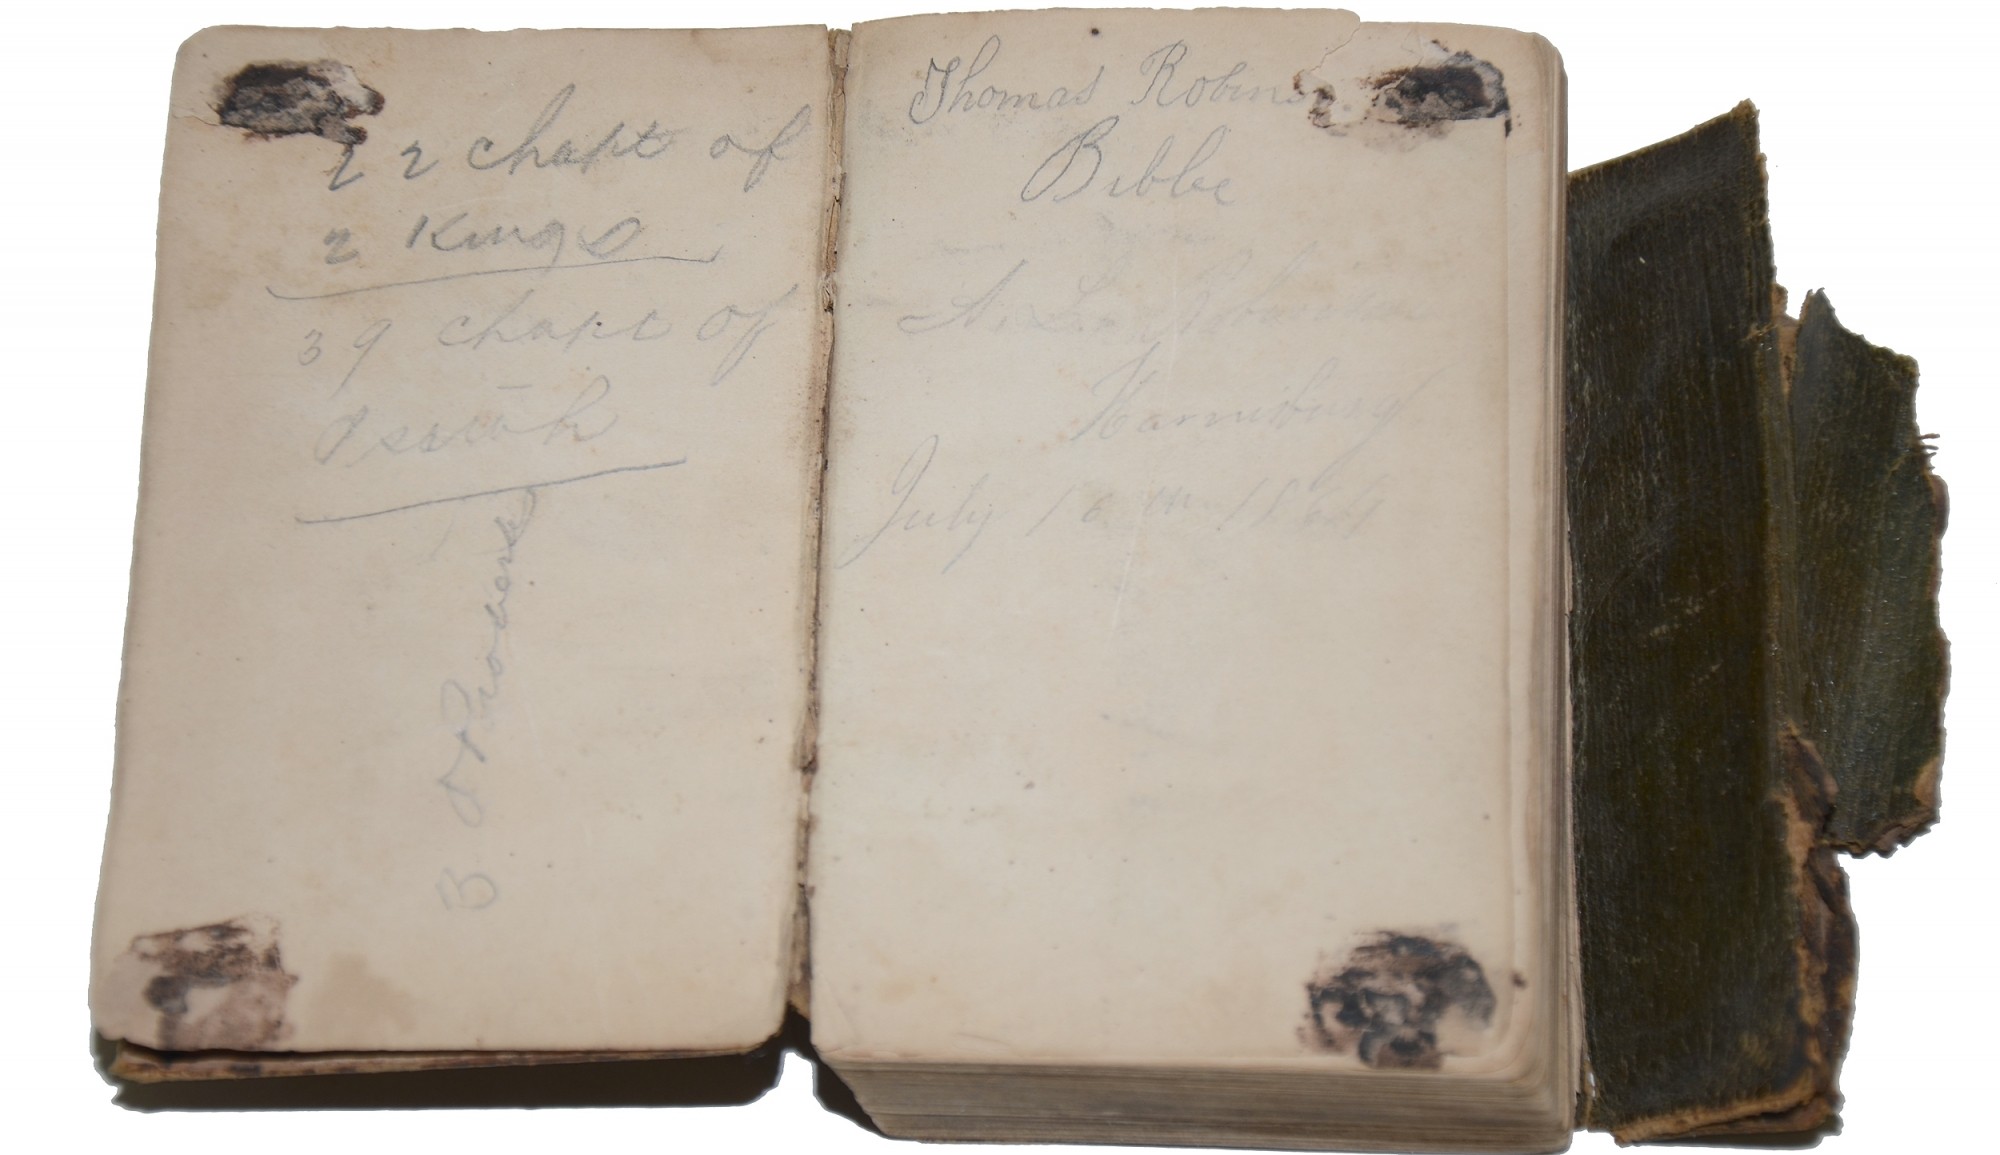 22 chapt of
2 Kings
39 chapt of
Isaiah
3 of Proverbs
Thomas Robinson
Bible
A. L. Robinson
Harrisburg
July 16th 1869